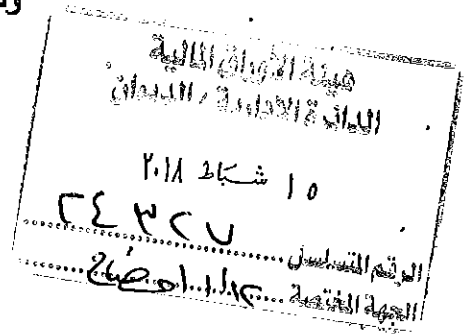 هيئة الأوراق المالية
الدائرة الإدارية / الديوان
١٥ شباط ٢٠١٨
الرقم التسلسل ٢٤٣٢٧
الجهة المختصة